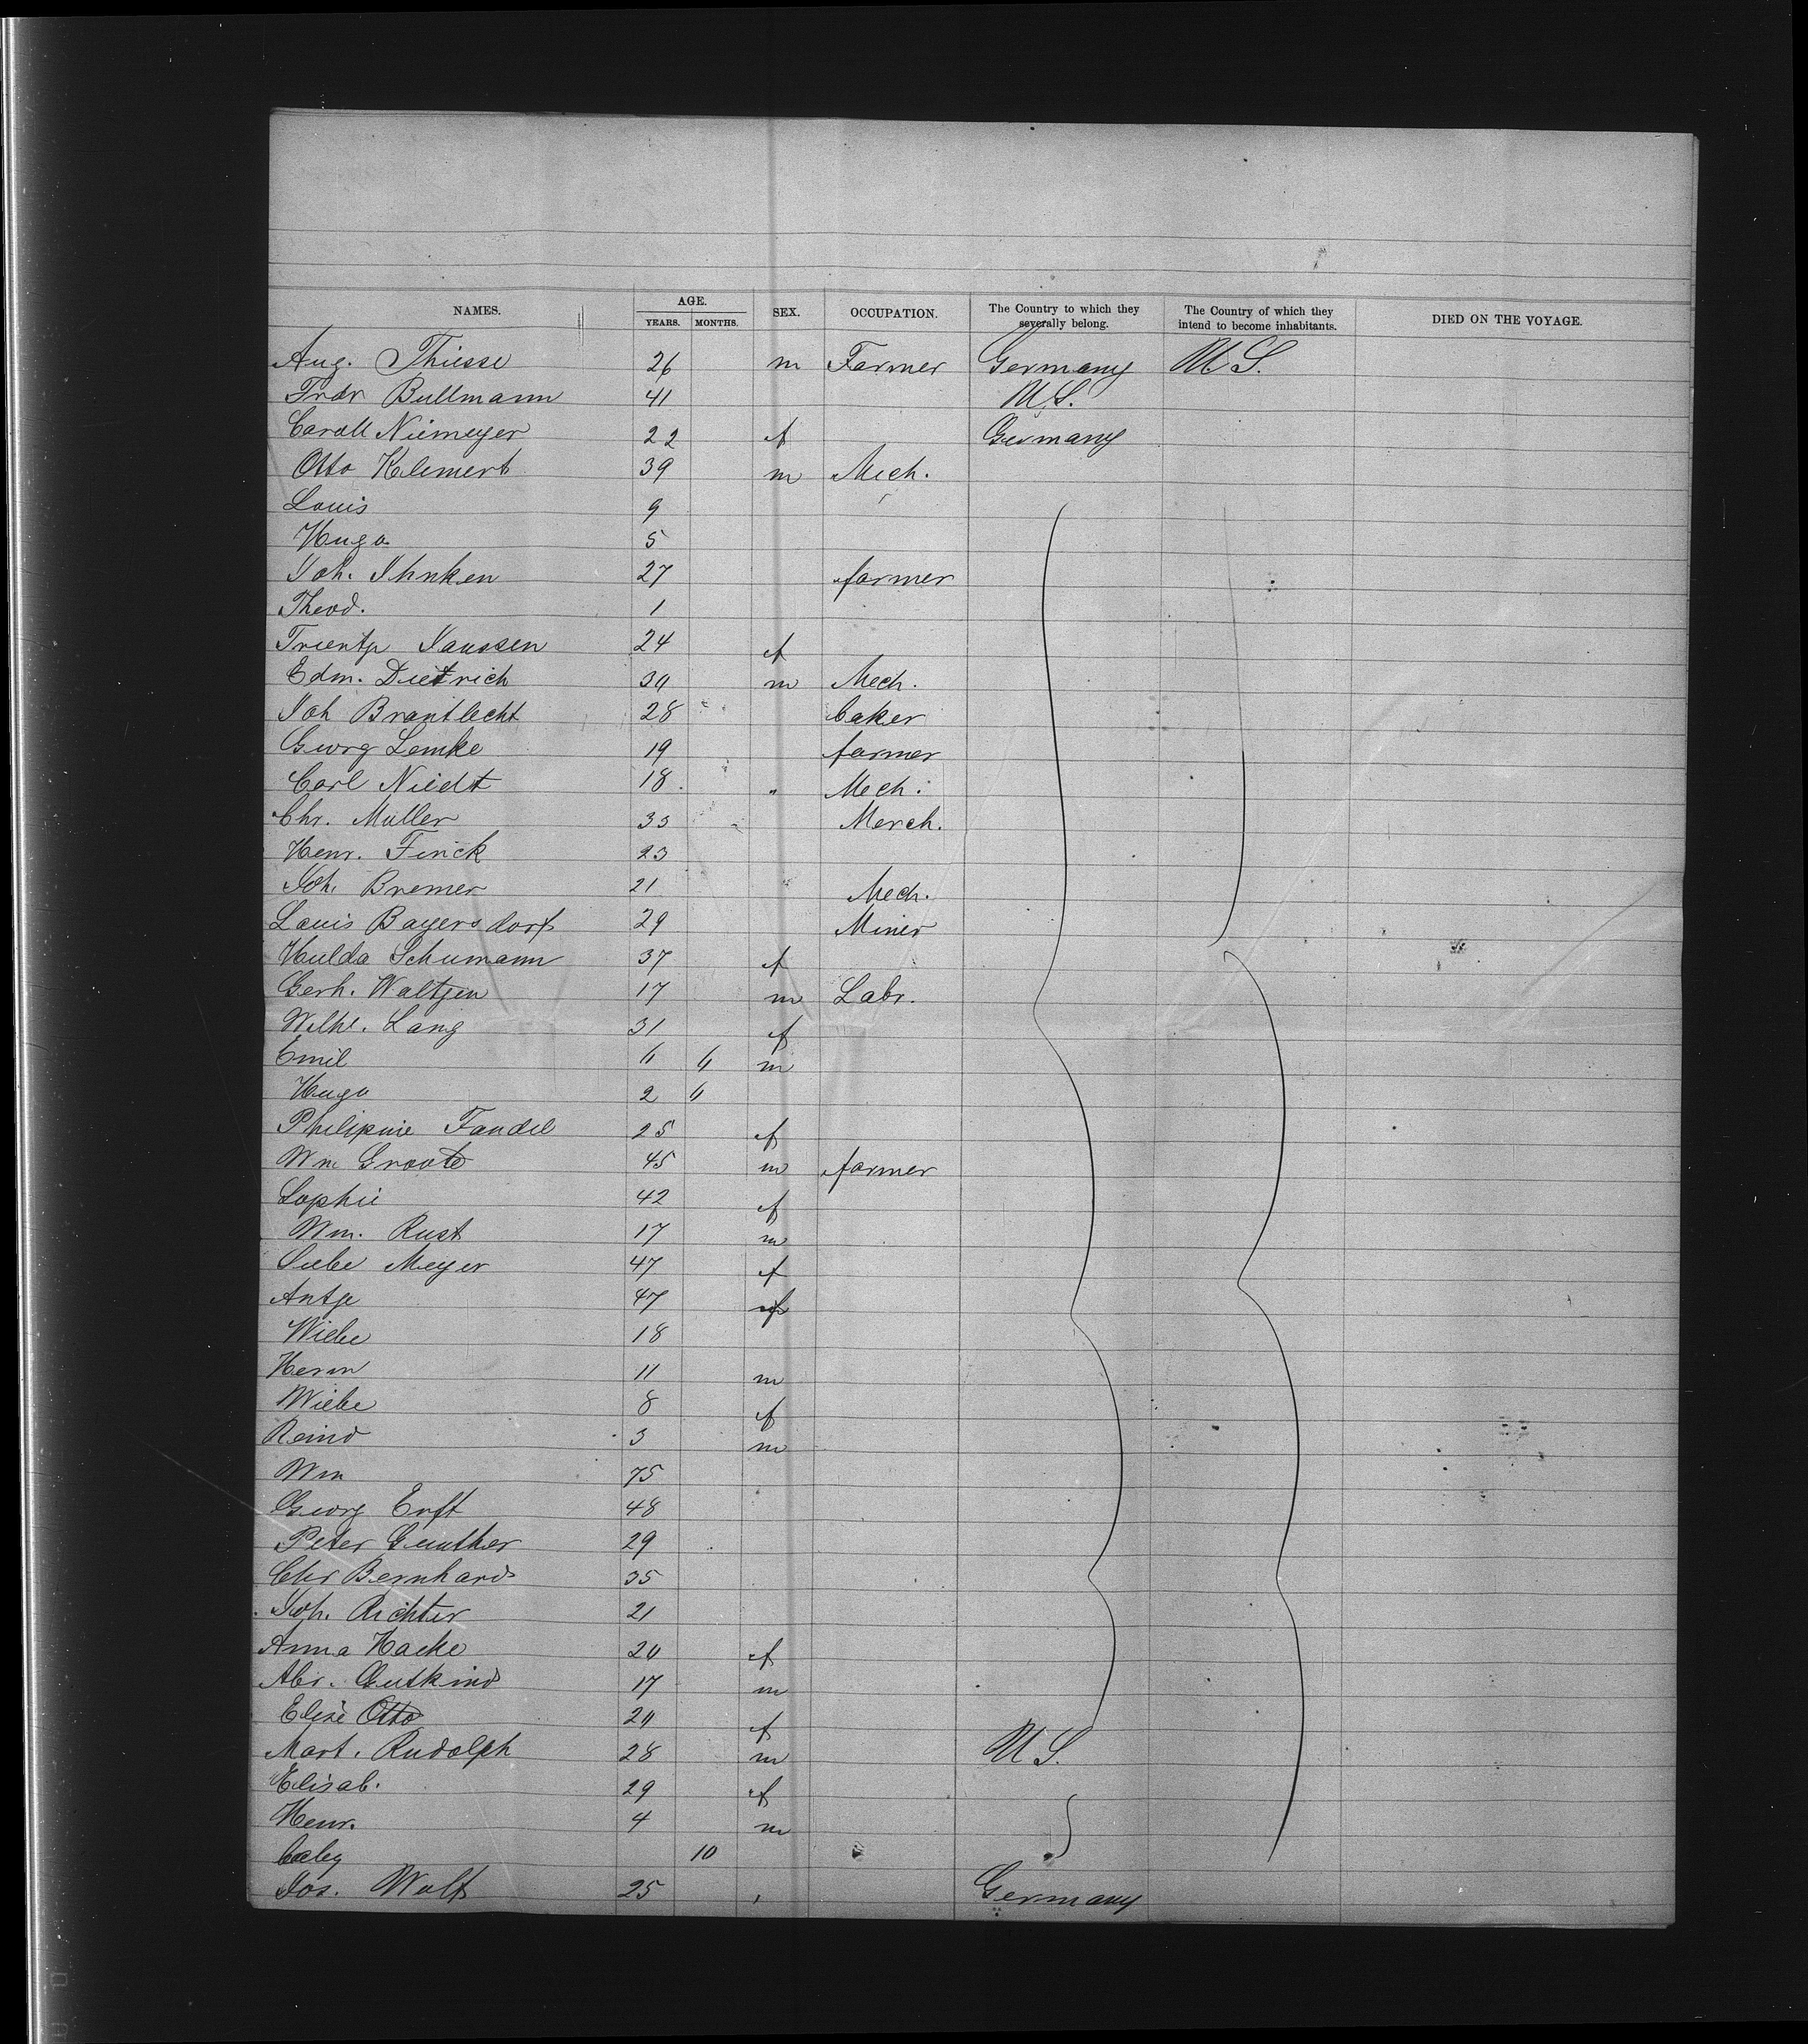 NAMES. AGE. YEARS. MONTHS. SEX. OCCUPATION. The Country to which they severally belong. The Country of which they intend to become inhabitants. DIED ON THE VOYAGE.
Aug. Thiesse 26 m Farmer Germany U.S.
Frdr Bullmann 41 U.S.
Caroll Niemeyer 22 f Germany
Otto Klemert 39 m Mech.
Louis 9
Hugo 5
Joh. Ihnken 27 farmer
Theod. 1
Trientje Janssen 24 f
Edm. Dietrich 34 m Mech.
Joh Brantlecht 28 baker
Georg Lemke 19 farmer
Carl Niedt 18 " Mech.
Chr. Muller 33 Merch.
Henr. Finck 23
Joh. Bremer 21 Mech.
Louis Bayersdorf 29 Miner
Hulda Schumann 37 f
Gerh. Waltjen 17 m Labr.
Wilhe. Lang 31 f
Emil 4 4 m
Hugo 2 4
Philipine Faudel 25 f
Wm Groote 45 m farmer
Sophie 42 f
Wm. Rust 17 m
Siebe Meyer 47 f
Antje 47 f
Wiebe 18
Herm 11 m
Wiebe 8 f
Reind 3 m
Wm 75
Georg Erft 48
Peter Gunther 29
Chr Bernhard 35
Joh. Richter 21
Anna Hacke 24 f
Abr. Gutkind 17 m
Elise Otto 24 f
Mart. Rudolph 28 m U.S.
Elisab. 29 f
Henr. 4 m
baby 10
Jos. Wolf 25 Germany